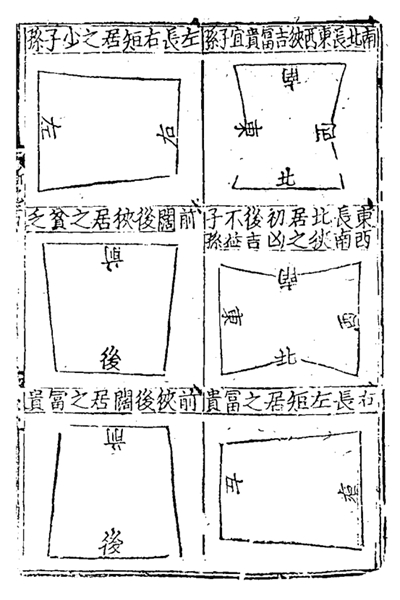 南北長東西狹吉富貴宜子孫
南
東
西
北
左長右矩居之少子孫
左
右
東西長南北狹居之初凶後吉不延子孫
南
東
西
北
前闊後狹居之貧乏
前
後
右長左矩居之富貴
左
右
前狹後闊居之富貴
前
後